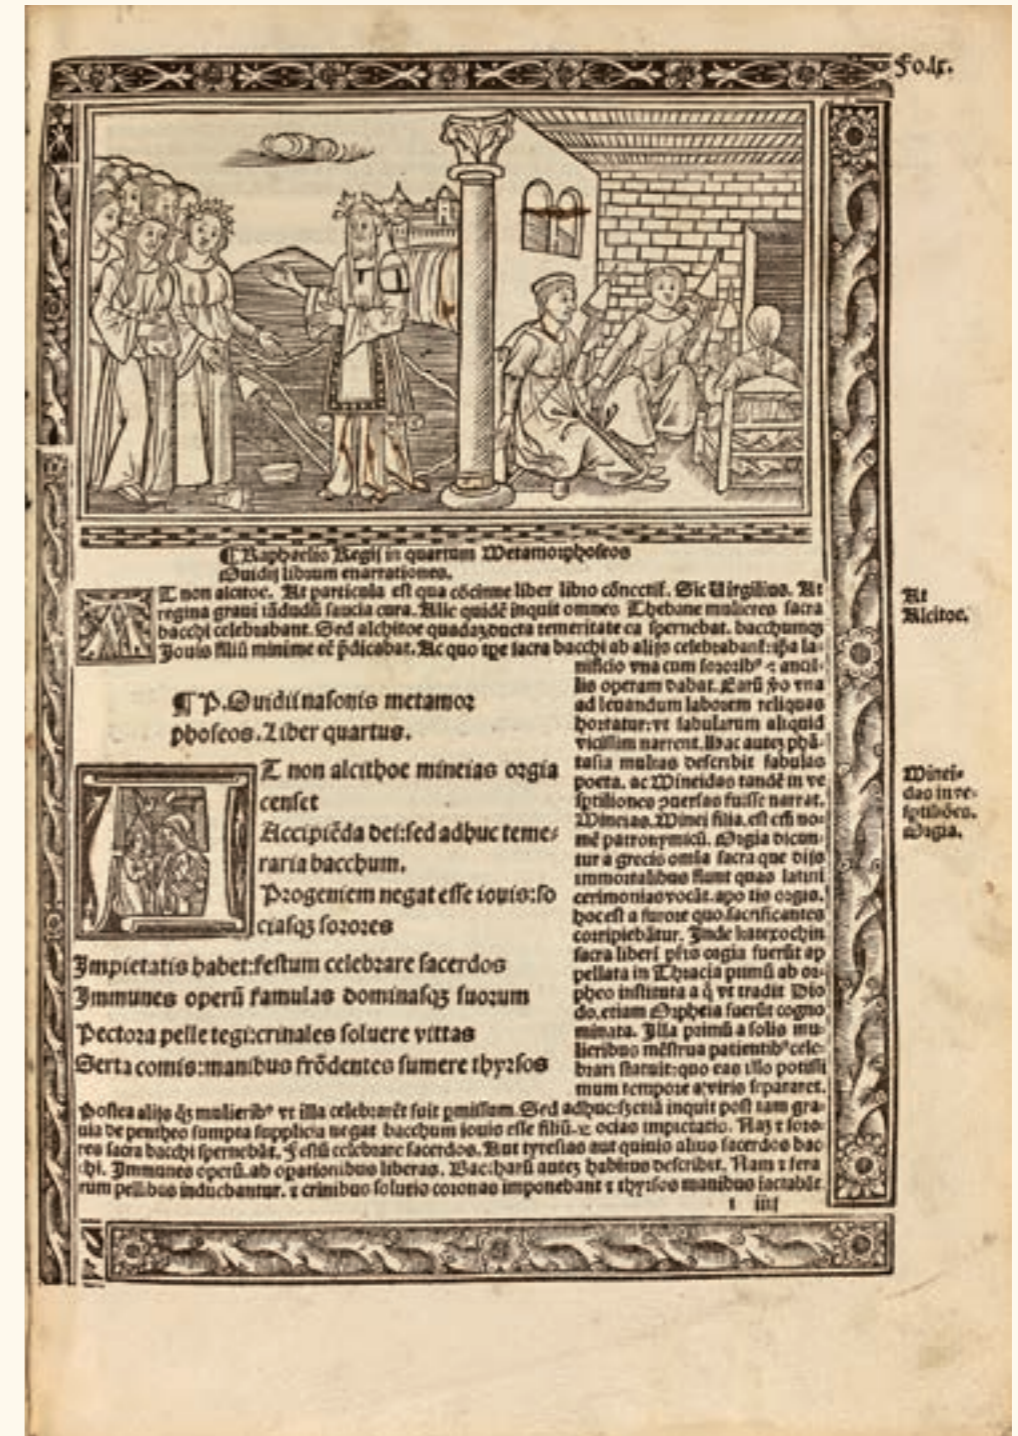 Fo.lx.
¶ Raphaelis Regij in quartum Metamorphoseos
Ouidij librum enarrationes.
AT non alcitoe. At particula est qua cōcinne liber libro cōnectit̃. Sic Uirgilius. At
regina graui iādudū saucia cura. Alie quidē inquit omnes Thebane mulieres sacra
bacchi celebrabant. Sed alchitoe quadaꝫ ducta temeritate ea spernebat. bacchumqꝫ
Jouis filiū minime eē p̄dicabat. Ac quo tp̄e sacra bacchi ab alijs celebrabant̃: ip̄a la-
nificio vna cum sororibꝰ ⁊ ancil-
lis operam dabat. Earū ꝟo vna
ad leuandum laborem reliquas
hortatur: vt fabularum aliquid
vicissim narrent. Hac auteꝫ phā-
tasia multas describit fabulas
poeta. ac Mineidas tandē in ve
sptiliones ꝯuersas fuisse narrat.
Mineias. Minei filia. est em̄ no-
mē patronymicū. Orgia dicun-
tur a grecis omīa sacra que dijs
immortalibus fiunt quas latini
cerimonias vocāt. apo tis orgis.
hoc est a furore quo sacrificantes
corripiebātur. Inde katexochin
sacra liberi pr̄is orgia fuerūt ap
pellata in Thracia primū ab or-
pheo instituta a q̄ vt tradit Dio
do. etiam Orpheia fuerūt cogno
minata. Illa primū a solis mu-
lieribus mēstrua patientibꝰ cele-
brari statuit: quo eas illo potissi
mum tempore a viris separaret.
¶ P. Ouidii nasonis metamor
phoseos. Liber quartus.
AT non alcithoe mineias orgia
censet
Accipiēda dei: sed adhuc teme-
raria bacchum.
Progeniem negat esse iouis: so
ciasqꝫ sorores
Impietatis habet: festum celebrare sacerdos
Immunes operū famulas dominasqꝫ suorum
Pectora pelle tegi: crinales soluere vittas
Serta comis: manibus frōdentes sumere thyrsos
Postea alijs qꝫ mulieribꝰ vt illa celebrarēt fuit ꝑmissum. Sed adhuc: etiā inquit post tam gra-
uia de pentheo sumpta supplicia negat bacchum iouis esse filiū. ⁊ socias impietatis. Naꝫ ⁊ soro-
res sacra bacchi spernebāt. Festū celebrare sacerdos. Aut tyresias aut quiuis alius sacerdos bac
chi. Immunes operū. ab opationibus liberas. Baccharū auteꝫ habitus describit. Nam ⁊ fera
rum pellibus induebantur. ⁊ crinibus solutis coronas imponebant ⁊ thyrsos manibus iactabāt
iiij
At
Alcitoe.
Minei-
das in ve-
sptiliōes.
Orgia.